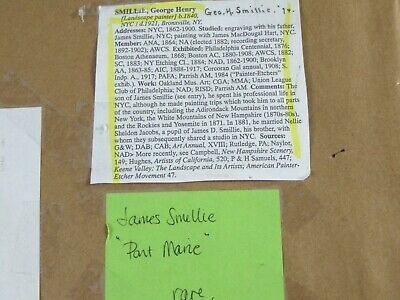 SMILLIE, George Henry
Geo. H. Smillie.
[Landscape painter] b.1840,
NYC / d.1921, Bronxville, NY.
Addresses: NYC, 1862-1900. Studied: engraving with his father,
James Smillie, NYC; painting with James MacDougal Hart, NYC.
Member: ANA, 1864; NA (elected 1882; recording secretary,
1892-1902); AWCS. Exhibited: Philadelphia Centennial, 1876;
Boston Athenaeum, 1868; Boston AC, 1880-1908; AWCS, 1882;
SC, 1883; NY Etching Cl., 1884; NAD, 1862-1900; Brooklyn
AA, 1863-85; AIC, 1888-1917; Corcoran Gal annual, 1908; S.
Indp. A., 1917; PAFA; Parrish AM, 1984 ("Painter-Etchers"
exhib.). Work: Oakland Mus. Art; CGA; MMA; Union League
Club of Philadelphia; NAD; RISD; Parrish AM. Comments: The
son of James Smillie (see entry), he spent his professional life in
NYC, although he made painting trips which took him to all parts
of the country, including the Adirondack Mountains in northern
New York, the White Mountains of New Hampshire (1870s-80s),
and the Rockies and Yosemite in 1871. In 1881, he married Nellie
Sheldon Jacobs, a pupil of James D. Smillie, his brother, with
whom they subsequently shared a studio in NYC. Sources:
G&W; DAB; CAB; Art Annual, XVIII; Rutledge, PA; Naylor,
NAD> More recently, see Campbell, New Hampshire Scenery,
149; Hughes, Artists of California, 520; P & H Samuels, 447;
Keene Valley: The Landscape and Its Artists; American Painter-
Etcher Movement 47.
James Smellie
"Port Marie"
rare.